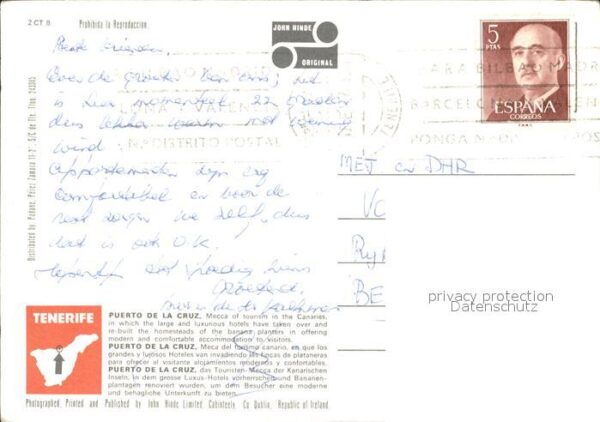 2 CT 8
Prohibida la Reproduccion.
JOHN HINDE
ORIGINAL
5
PTAS
ESPAÑA
CORREOS
Beste vrienden,
Over de groeten van ons; het
is hier momenteel 22 graden
dus lekker warm met weinig
wind
Appartementen zijn erg
comfortabel en voor de
rest zorgen we zelf, dus
dat is ook O.K.
DISTRITO POSTAL
BARCELONA
PONGA
TENERIFE
MEJ en DHR
VO
RY
BE
privacy protection
Datenschutz
Distributed by
TENERIFE
PUERTO DE LA CRUZ, Mecca of tourism in the Canaries,
in which the large and luxurious hotels have taken over and
re-built the homesteads of the banana planters in offering
modern and comfortable accommodation to visitors.
PUERTO DE LA CRUZ, Meca del turismo canario, en que los
grandes y lujosos Hoteles van invadiendo las fincas de plataneras
para ofrecer al visitante alojamientos modernos y confortables.
PUERTO DE LA CRUZ, das Touristen-Mecca der Kanarischen
Inseln, in dem grosse Luxus-Hotels vorherrschen und Bananen-
plantagen renoviert wurden, um dem Besucher eine moderne
und behagliche Unterkunft zu bieten.
Photographed, Printed and Published by John Hinde Limited, Cabinteely, Co Dublin, Republic of Ireland.